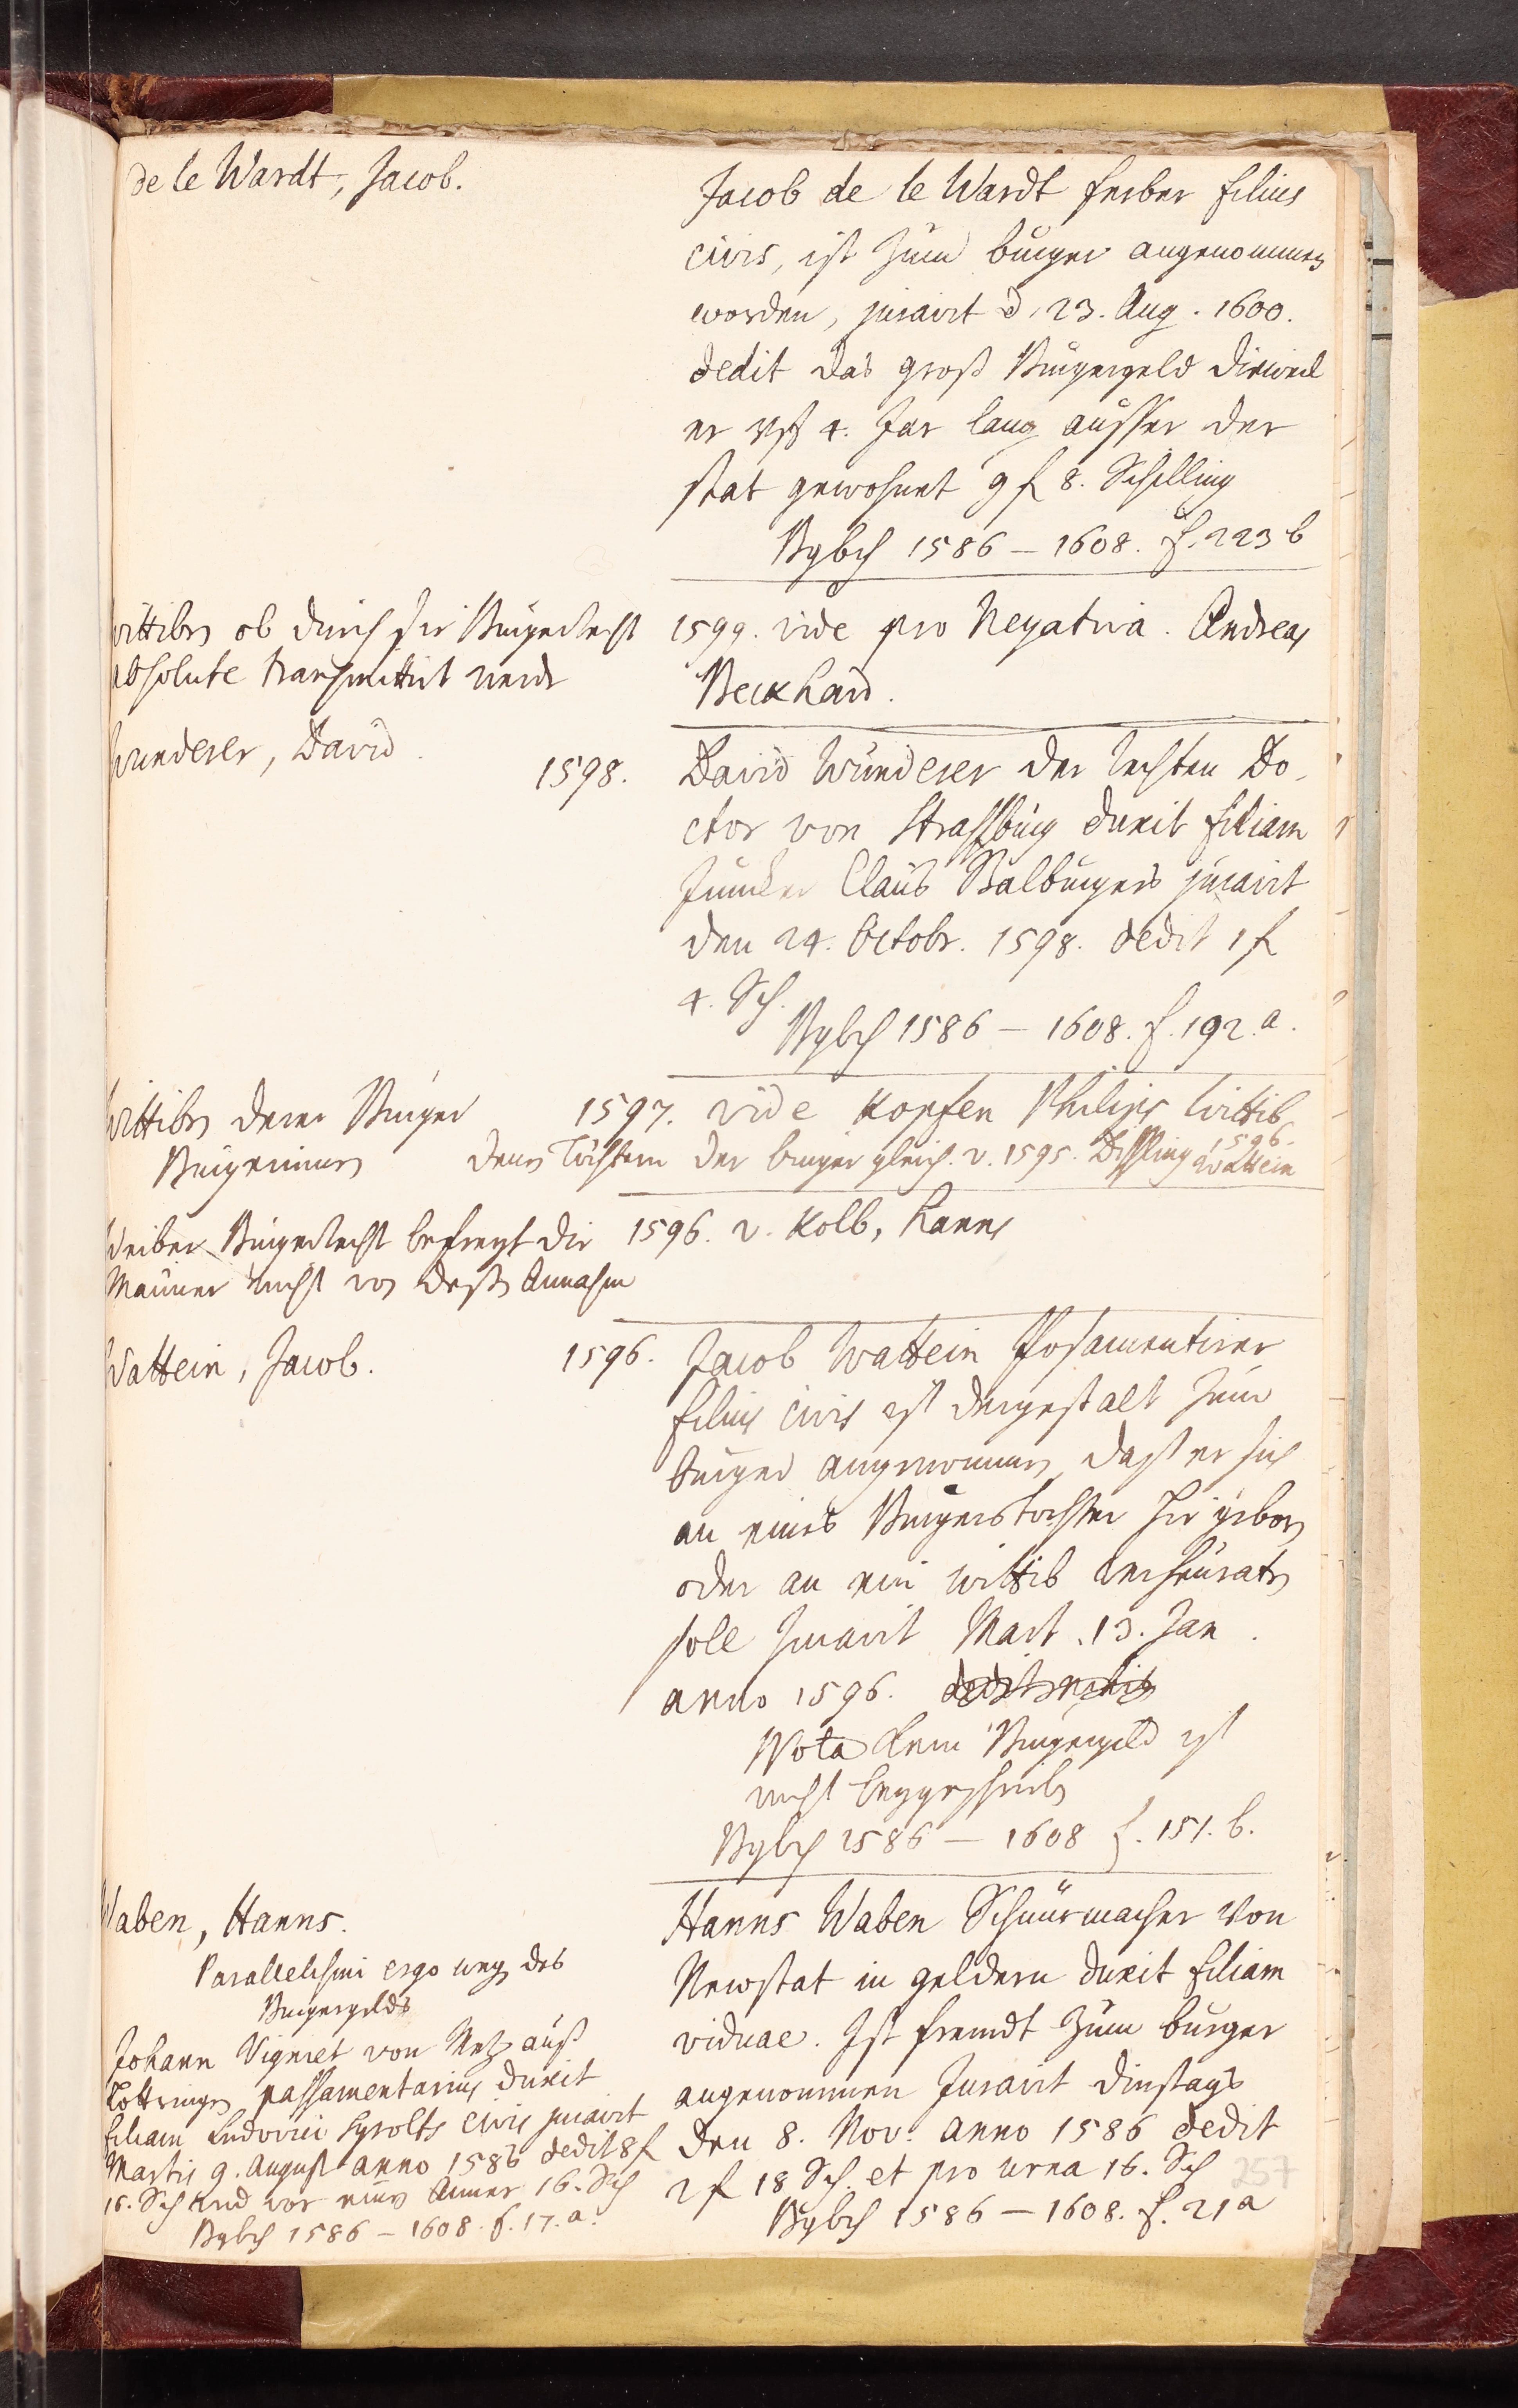 de le Wardt, Jacob.
Jacob de le Wardt ferber filius
civis, ist zum burger angenommen
worden, juravit d. 23. Aug. 1600.
dedit das groß Burgergeld dieweil
er 4. Jar lang ausser der
stat gewohnet 9 f 8. Schilling
Bgbch 1586 – 1608. f. 223 b
Wittiben ob durch sie Burgerrecht
absolute transmittirt werde
1599. vide pro Negativa. Andreas
Beckhard.
Wunderer, David.
1598. David Wunderer der rechten Do-
ctor von Strassburg duxit filiam
Juncker Claus Stalburgers juravit
den 24. Octobr. 1598. dedit 1 f
4. Sch.
Bgbch 1586 – 1608. f. 192. a.
Wittiben derer Burger
Burgerinnen
1597. vide Kopfen Philips Wittib
denen Töchtern der burger gleich. v. 1595. 1596.
Wattein
Weiber Burgerrecht befreyt die
Männer nicht von deßen Annahm
1596. v. Kolb, Hanns
Wattein, Jacob.
1596. Jacob Wattein Posamentirer
filius civis ist dergestalt zum
burger angenommen, daß er sich
an eines Burgerstochter hie geborn
oder an ein wittib verheurathen
solle Juravit Mart. 13. Jan.
anno 1596. dedit nihil
Nota kein Burgergeld ist
nicht beygeschrieben
Bgbch 1586 – 1608 f. 151. b.
Waben, Hanns.
Parallelismi ergo weg des
Burgergelds
Johann Vigniet von Metz auß
Lottringen passamentarius duxit
filiam Ludovici civis juravit
Martis 9. August anno 1586 dedit 8 f
16. Sch und vor einen Aimer 16. Sch
Bgbch 1586 – 1608. f. 17. a.
Hanns Waben Schnürmacher von
Newstat in geldern duxit filiam
viduae. Ist fremdt zum burger
angenommen Juravit dinstags
den 8. Nov. anno 1586 dedit
2 f 18 Sch. et pro urna 16. Sch
Bgbch 1586 – 1608. f. 21 a
257